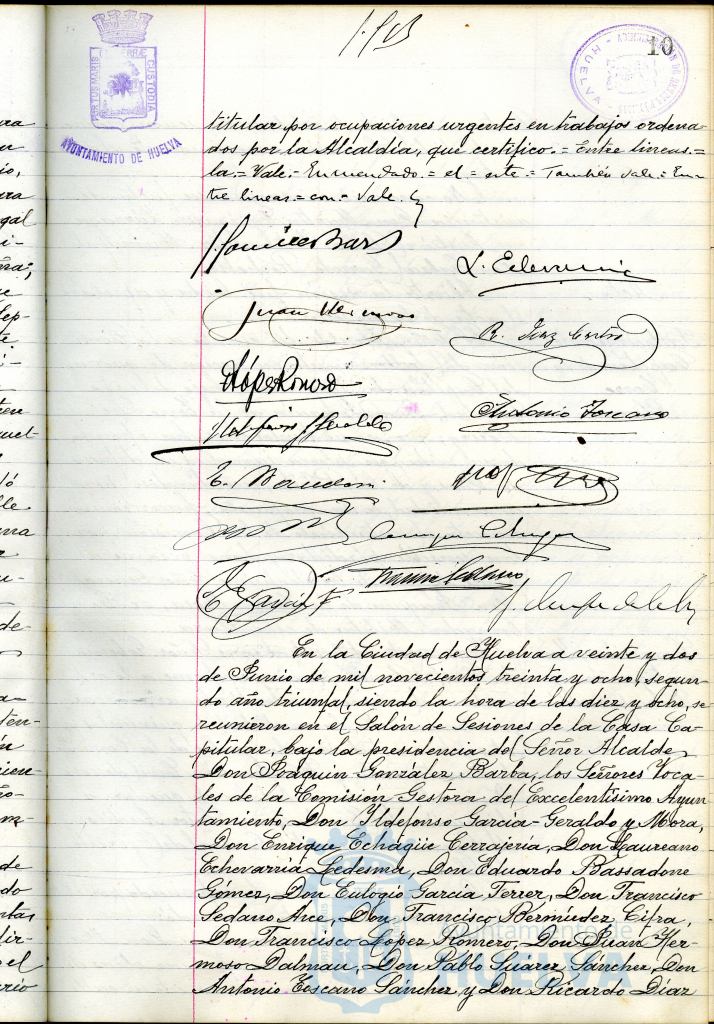 10
PORTUS MARIS
CUSTODIA
AYUNTAMIENTO DE HUELVA
HUELVA
titular por ocupaciones urgentes en trabajos ordena-
dos por la Alcaldía, que certifico.= Entre lineas.=
la.= Vale. Enmendado.= el = este = También vale = En-
tre lineas = con = Vale.
L. Echevarría
Juan Hermoso
R. Díaz Castro
F. López Romero
Antonio Toscano
E. Bassadone
Enrique Echague
E. García F
Francisco Sedano
En la Ciudad de Huelva a veinte y dos
de Junio de mil novecientos treinta y ocho, segun-
do año triunfal, siendo la hora de las diez y ocho, se
reunieron en el Salón de Sesiones de la Casa Ca-
pitular, bajo la presidencia del Señor Alcalde
Don Joaquín González Barba, los Señores Voca-
les de la Comisión Gestora del Excelentísimo Ayun-
tamiento, Don Ildefonso García-Geraldo y Mora,
Don Enrique Echagüe Cerrajería, Don Laureano
Echevarría Ledesma, Don Eduardo Bassadone
Gómez, Don Eulogio García Ferrer, Don Francisco
Sedano Arce, Don Francisco Bermúdez Cifra,
Don Francisco López Romero, Don Juan Her-
moso Dalmau, Don Pablo Suárez Sánchez, Don
Antonio Toscano Sánchez y Don Ricardo Díaz
Ayuntamiento de
HUELVA